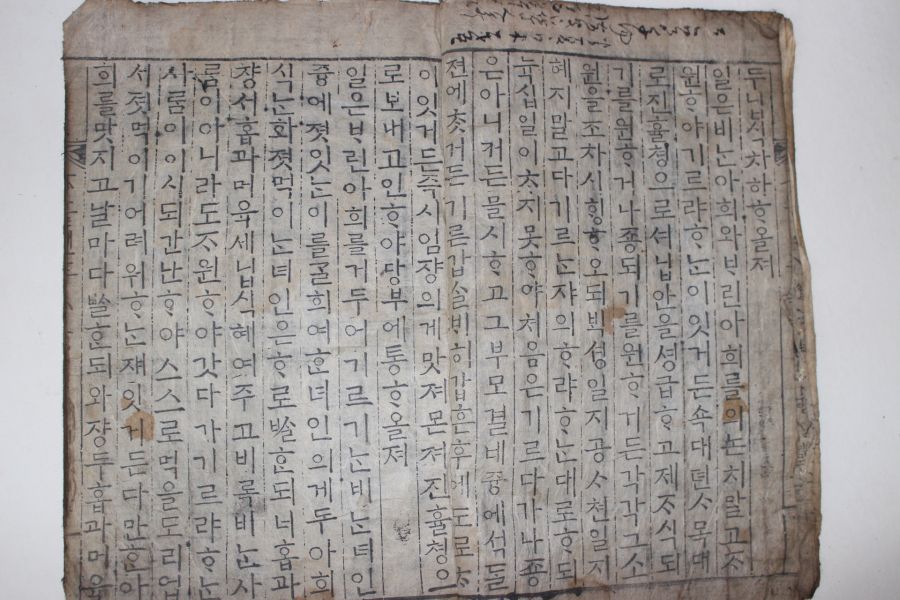 두닙식차하ᄒᆞ올제
일은비ᄂᆞᆫ아희와ᄇᆞ린아희를의논치말고ᄌᆞ
원ᄒᆞ야기르랴ᄒᆞᄂᆞᆫ이잇거든쇽대뎐ᄉᆞ목대
로진휼쳥으로셔닙안을셩급ᄒᆞ고제ᄌᆞ식되
기를원ᄒᆞ거나죵되기를원ᄒᆞ거든각각그소
원을조차시ᄒᆡᆼᄒᆞ오되ᄇᆡᆨ셩일지공ᄉᆞ쳔일지
혜지말고다기르ᄂᆞᆫ쟈의ᄒᆞ랴ᄒᆞᄂᆞᆫ대로ᄒᆞ되
뉵십일이ᄎᆞ지못ᄒᆞ야처음은기르다가나죵
은아니커든믈시ᄒᆞ고그부모결네즁에석ᄃᆞᆯ
젼에ᄎᆞᆺ거든기른갑ᄉᆞᆯ비히갑흔후에도로ᄎᆞ
이잇거든즉시임쟝의게맛져몬져진휼쳥으
로보내고인ᄒᆞ야당부에통ᄒᆞ올져
일은ᄇᆞ린아희를거두어기르기ᄂᆞᆫ비ᄂᆞᆫ녀인
즁에졋잇ᄂᆞᆫ이를ᄀᆞᆯ희여ᄒᆞᆫ녀인의게두아희
식ᄂᆞᆫ화졋먹이ᄂᆞᆫ녀인은ᄒᆞ로ᄡᆞᆯᄒᆞᆫ되너홉과
쟝서홉과머육세닙식혜여주고비록비ᄂᆞᆫ사
ᄅᆞᆷ이아니라도ᄌᆞ원ᄒᆞ야갓다가기르랴ᄒᆞᄂᆞᆫ
사ᄅᆞᆷ이이시되간난ᄒᆞ야스스로먹을도리업
서졋먹이기어려워ᄒᆞᄂᆞᆫ쟤잇거든다만ᄒᆞᆫ아
희를맛지고날마다ᄡᆞᆯᄒᆞᆫ되와쟝두홉과머육